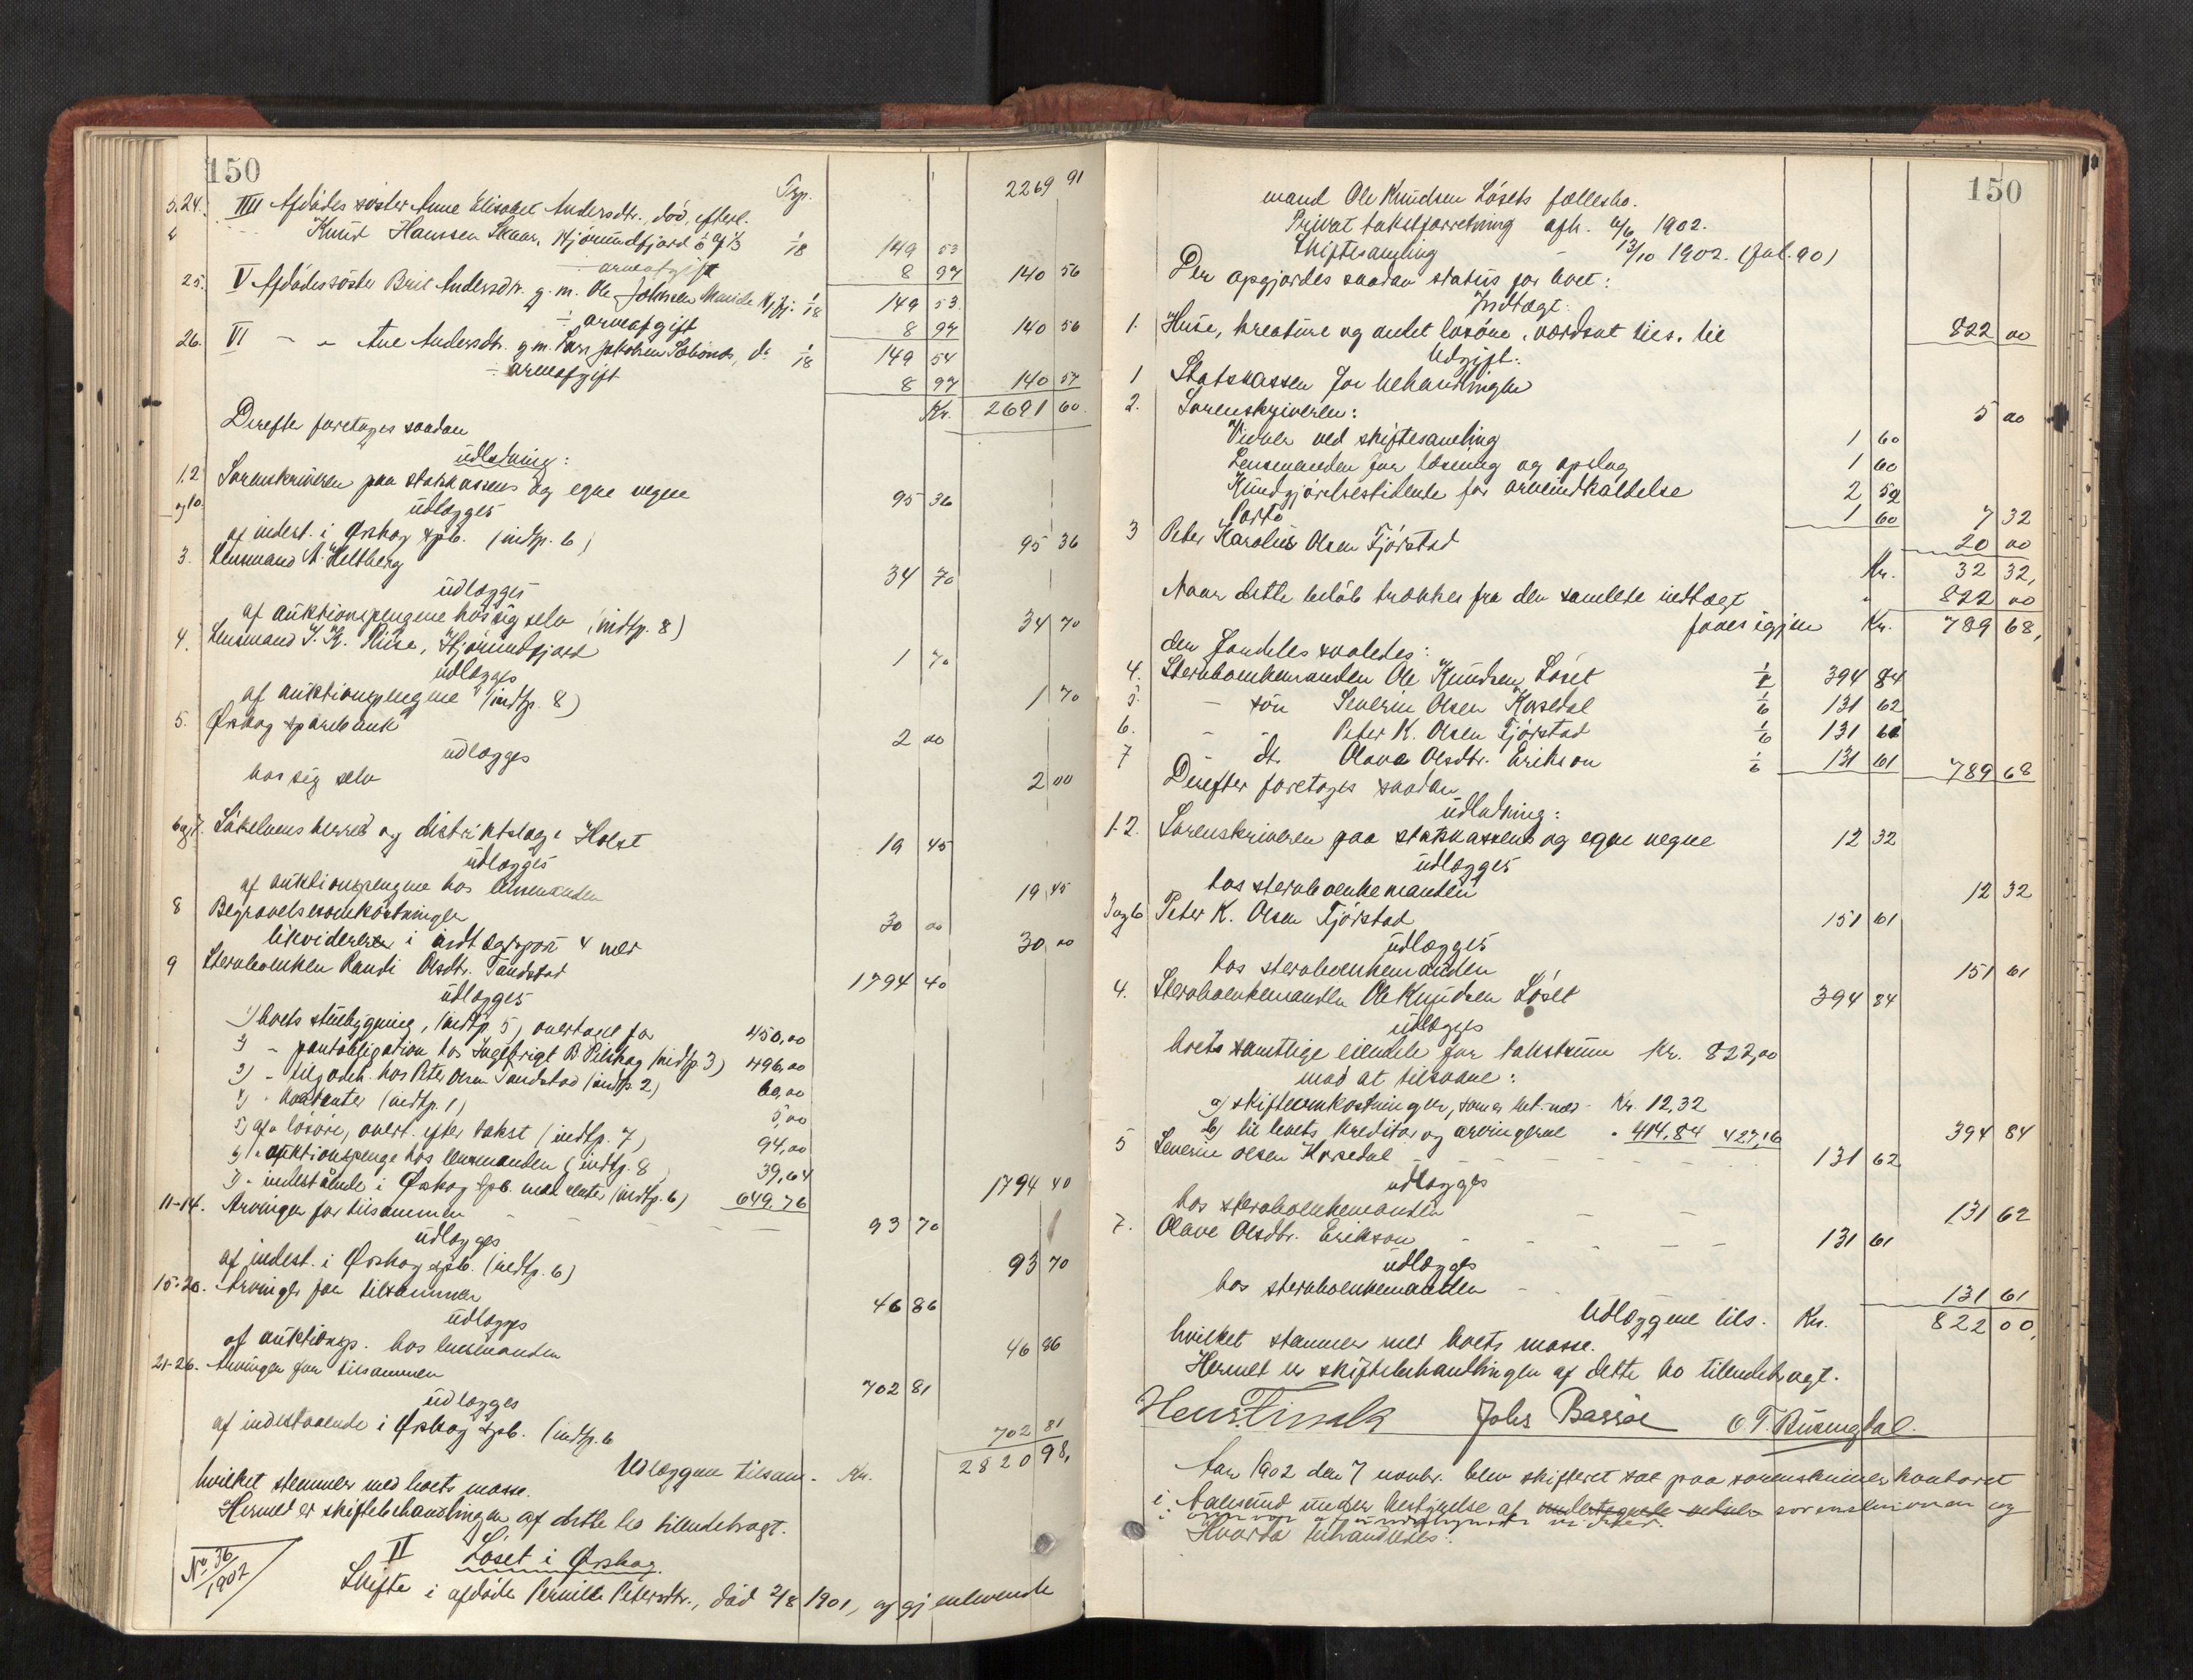 150
Trsp. 2269 91
5.24. IIII Afdødes søster Anne Elisabet Andersdtr., död, efterl.
Knud Hanssen Skaar, Hjörundfjord 1/6 af 1/3 1/18 149 53
÷ arveafgift 8 97 140 56
25. V Afdödes söster Brit Andersdtr. g. m. Ole Johnsen 1/18 149 53
÷ arveafgift 8 97 140 56
26. VI - " - Ane Andersdtr. g. m. Lars Jakobsen do 1/18 149 54
÷ arveafgift 8 97 140 57
Kr. 2691 60.
Derefter foretages saadan
udlodning:
1.2 Sorenskriveren paa statskassens og egne vegne 95 36
og 10. udlægges
af indest. i Ørskog spb. (indtp. 6) 95 36
3. Lensmand A. Heltberg 34 70
udlægges
af auktionspengene hos sig selv (indtp. 8) 34 70
4. Lensmand J. K. Riise, Hjörundfjord 1 70
udlægges
af auktionspengene (indtp. 8) 1 70
5. Ørskog sparebank 2 00
udlægges
hos sig selv 2 00
6 og 7. Søkelvens herred og distriktslæge Holst 19 45
udlægges
af auktionspengene hos lensmanden 19 45
8 Begravelsesomkostninger 30 00
likvideres i indtægtspost 4 med 30 00
9 Sterboenken Randi Olsdtr. Tandstad 1794 40
udlægges
1) boets stuebygning, (indtp. 5) overtaget for 450,00
2) - pantobligation hos Ingebrigt B. Pilskog (indtp. 3) 496,00
3) - tilgodeh. hos Peter Olsen Tandstad (indtp. 2) 60,00
4) - kontanter (indtp. 1) 5,00
5) af - løsöre, overt. efter takst (indtp. 7) 94,00
6) - auktionspenge hos lensmanden (indtp. 8 39,64
7) - indestående i Ørskog spb. med rente (indtp. 6) 649,76 1794 40
11-14. Arvinger for tilsammen 93 70
udlægges
af indest. i Ørskog spb. (indtp. 6) 93 70
15-20. Arvinger for tilsammen 46 86
udlægges
af auktionsp. hos lensmanden 46 86
21-26. Arvinger for tilsammen 702 81
udlægges
af indestaaende i Ørskog spb. (indtp. 6 702 81
Udlæggene tilsam. Kr. 2820 98,
hvilket stemmer med boets masse.
Hermed er skiftebehandlingen af dette bo tilendebragt.
No 36/1902 II Løset i Ørskog.
Skifte i afdöde Pernille Petersdtr., död 2/8 1901, og gjenlevende
150
mand Ole Knudsen Løsets fællesbo.
Privat takstforretning afh. /6 1902.
Skiftesamling - 13/10 1902. (fol. 90)
Der opgjordes saadan status for boet:
Indtægt:
1. Huse, kreature og andet løsöre, værdsat tils. til 822 00
Udgift:
1 Statskassen for behandlingen 5 00
2. Sorenskriveren:
Vidner ved skiftesamling 1 60
Lensmanden for læsning og opslag 1 60
Kundgjørelsestidende for arveindkaldelse 2 52
Porto 1 60 7 32
3 Peter Karolius Olsen Fjörstad 20 00
Kr. 32 32,
Naar dette beløb trækkes fra den samlede indtægt " 822 00
faaes igjen Kr. 789 68,
der fordeles saaledes:
4. Sterboenkemanden Ole Knudsen Löset 1/2 394 84
5. - sön Severin Olsen Korsedal 1/6 131 62
6. - - Peter K. Olsen Fjörstad 1/6 131 61
7 - dt. Olava Olsdtr. Erikson 1/6 131 61 789 68
Derefter foretages saadan
udlodning:
1.2. Sorenskriveren paa statskassens og egne vegne 12 32
udlægges
hos sterboenkemanden 12 32
3 og 6 Peter K. Olsen Fjörstad 151 61
udlægges
hos sterboenkemanden 151 61
4. Sterboenkemanden Ole Knudsen Löset 394 84
udlægges
boets samtlige eiendele for takstsum Kr. 822,00
mod at tilsvare:
a) skifteomkostninger, som er bet. med - Kr. 12,32
b) til boets kreditor og arvingerne " 414.84 427,16 394 84
5 Severin Olsen Korsedal 131 62
udlægges
hos sterboenkemanden 131 62
7. Olave Olsdtr. Erikson 131 61
udlægges
hos sterboenkemanden 131 61
Udlæggene tils. Kr. 822 00,
hvilket stemmer med boets masse.
Hermed er skiftebehandlingen af dette bo tilendebragt.
Johs Bassøe
Aar 1902 den 7 novbr. blev skifteret sat paa sorenskriverkontoret
i Aalesund under bestyrelse af undertegnede sorenskriveren og
Hvorda behandledes: